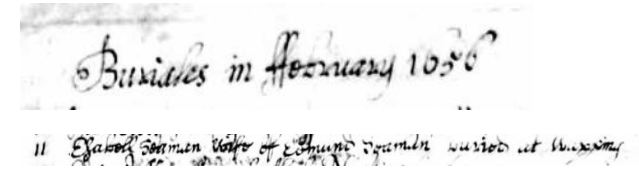 Buriales in ffebruary 1656
11 Elizabeth Seaman Wife of Edmund Seaman buried at